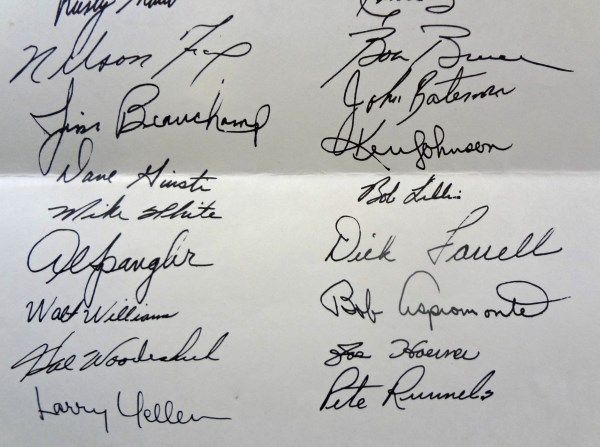 Rusty Staub
Nelson Fox
Jim Beauchamp
Dave Giusti
Mike White
Al Spangler
Walt Williams
Hal Woodeshick
Larry Yellen
Bob Bruce
John Bateman
Ken Johnson
Bob Lillis
Dick Farrell
Bob Aspromonte
Joe Hoerner
Pete Runnels